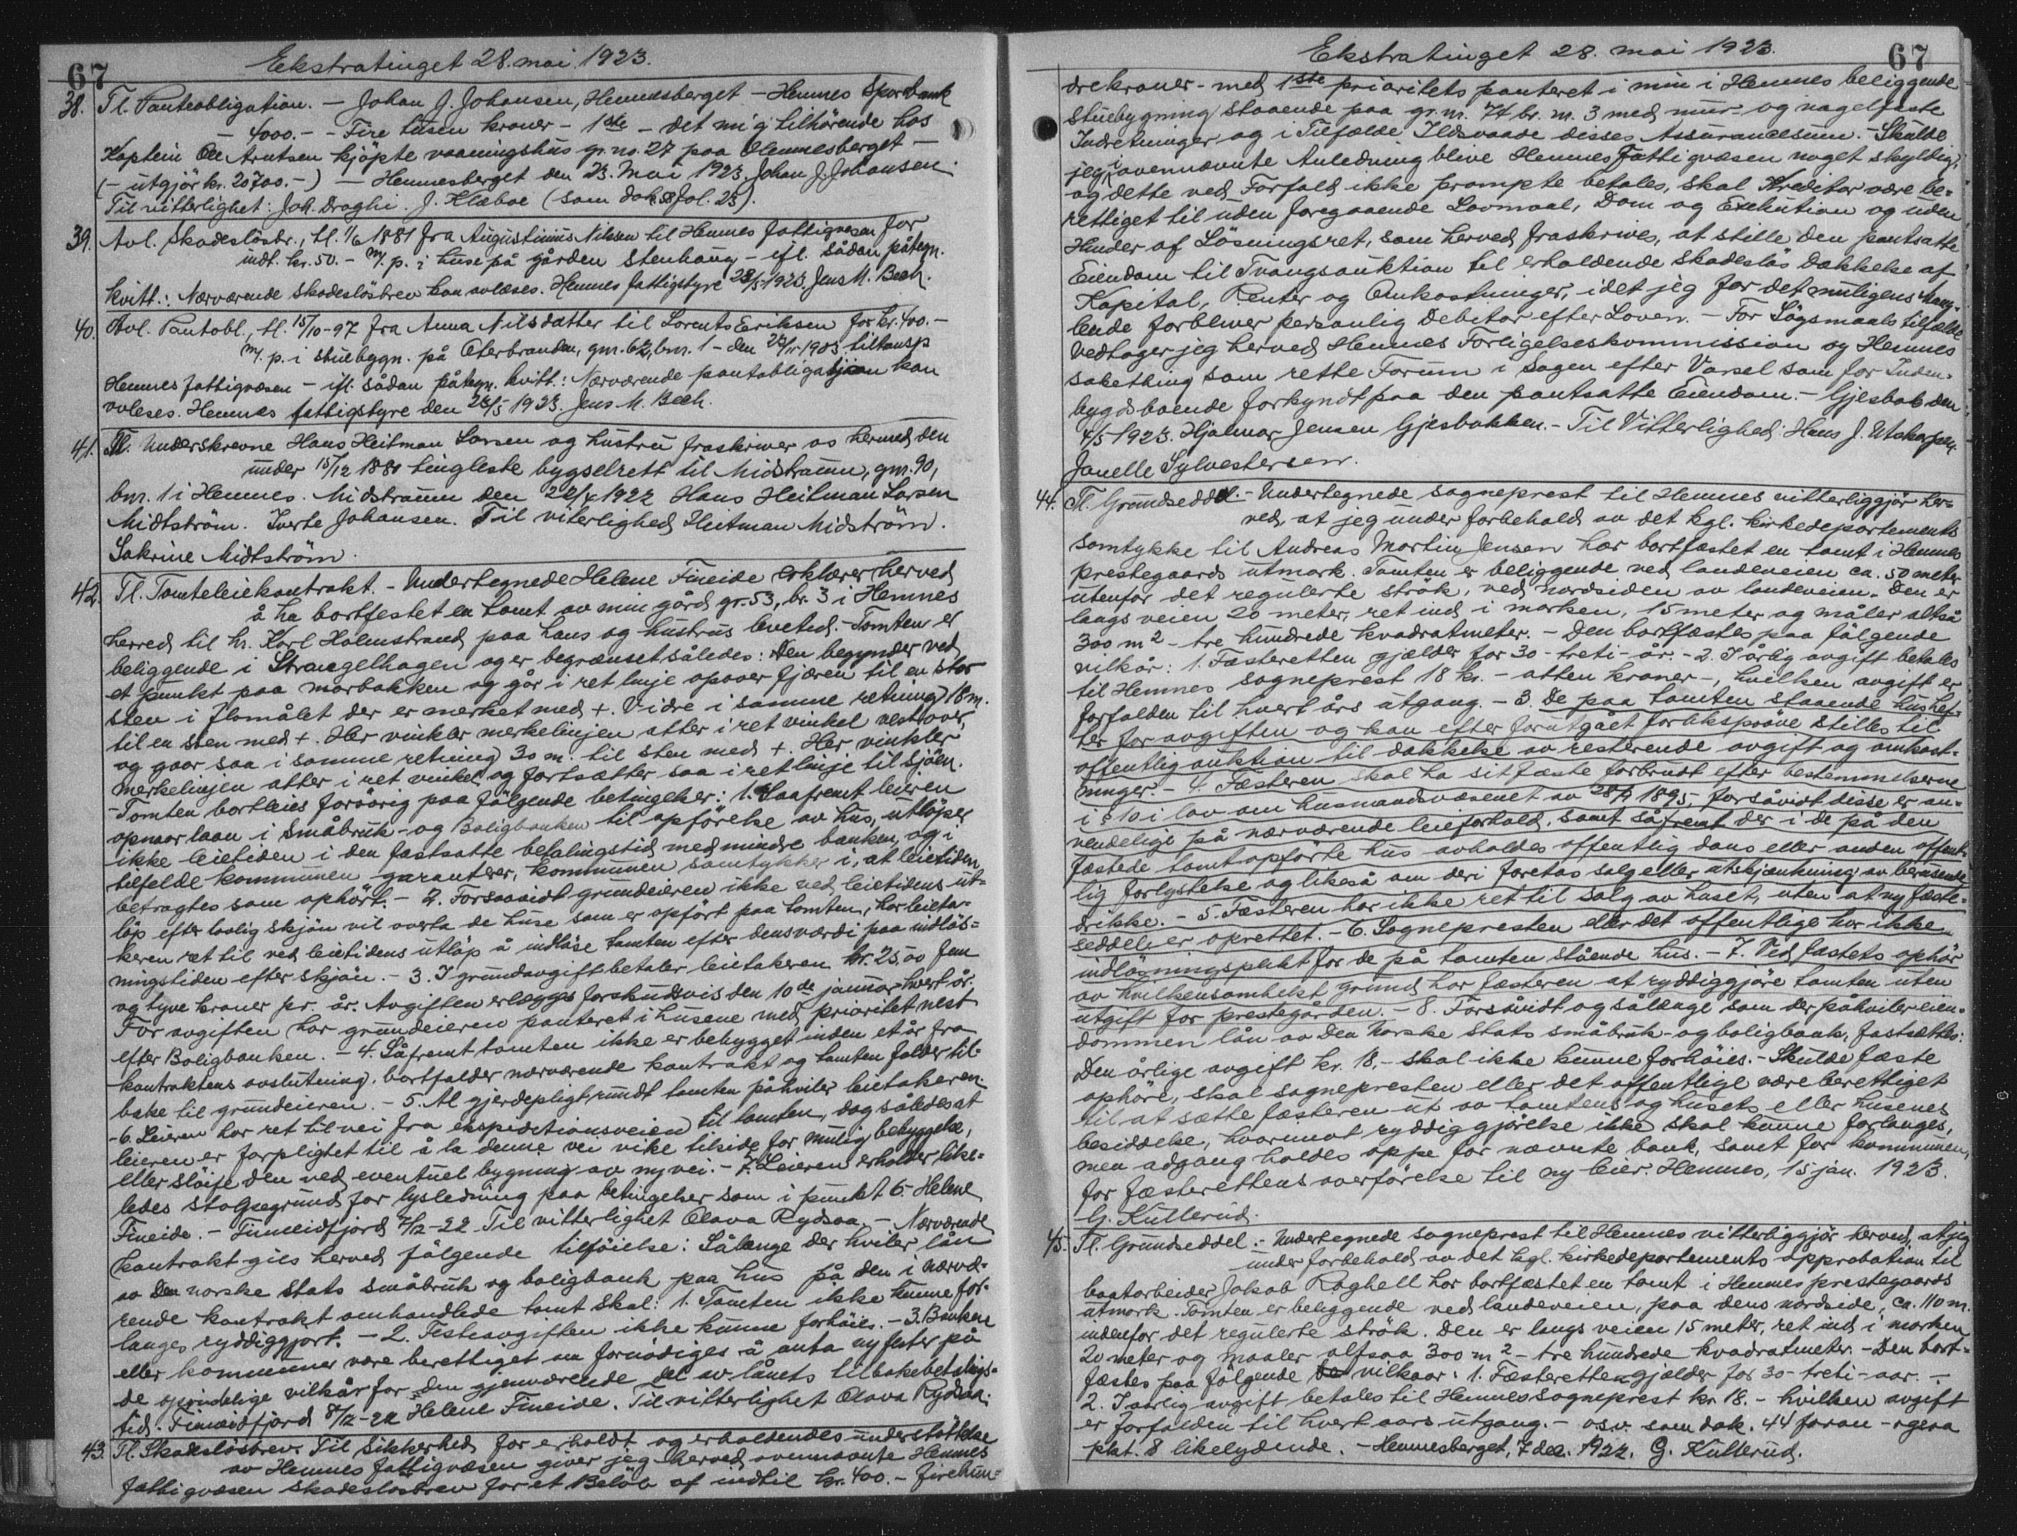 67
Ekstratinget 28. mai 1923.
38. Tl. Panteobligation. - Johan J. Johansen, Hemnesberget - Hemnes Sparebank
- 4000. - - Fire tusen kroner - 1ste - det mig tilhörende hos
Kaptein Ole Arntsen kjöpte vaaningshus gr. no. 27 paa Hemnesberget -
(- utgjör kr. 20700. -) - Hemnesberget den 23. Mai 1923. Johan J. Johansen.
Til vitterlighet: Joh. Draghi. J. Klæboe (som dok. 8 fol. 25).
39. Avl. Skadeslösbr., tl. 1/6 1881 fra Augustinus Nilsen til Hemnes fattigvesen for
indt. kr. 50. - m/. p. i huse på gården Stenhaug - ifl. sådan påtegn.
kvitt.: Nærværende skadeslösbrev kan avlæses. Hemnes fattigstyre 28/5 1923. Jens M. Bech.
40. Avl. Pantobl., tl. 15/10-97 fra Anna Nilsdatter til Lorents Eriksen for kr. 400. -
m/. p. i stuebygn. på Oterbranden, gnr. 62, bnr. 1 - den 1903 tiltransp.
Hemnes fattigvæsen - ifl. sådan påtegn. kvitt.: Nærværende pantobligatjion kan
avleses. Hemnes fattigstyre den 28/5 1923. Jens M. Bech.
41. Tl. Underskrevne Hans Heitman Larsen og hustru fraskriver os hermed den
under 15/12 1881 tingleste bygselrett til Midstraum, gnr. 90,
bnr. 1 i Hemnes. Midstraum den 1922 Hans Heitman Larsen
Midtström. Iverte Johansen. Til viterlighed Heitman Midström.
Sakrine Midtström.
42. Tl. Tomteleiekontrakt. - Undertegnede Helene Fineide erklærer herved
å ha bortfestet en tomt av min gård gr. 53, br. 3 i Hemnes
herred til hr. Karl Holmstrand paa hans og hustrus levetid. - Tomten er
beliggende i Strangelhagen og er begrænset således: Den begynder ved
et punkt paa marbakken og går i ret linje opover fjæren til en stor
sten i flomålet der er merket med +. Vidre i samme retning 18 m.
til en sten med +. Her vinkler merkelinjen atter i ret vinkel vestover
og gaar saa i samme retning 30 m. til sten med +. Her vinkler
merkelinjen atter i ret vinkel og fortsætter saa i ret linje til sjöen.
- Tomten bortleies forövrig paa fölgende betingelser: 1. Saafremt leieren
opnaar laan i Småbruk- og Boligbanken til opförelse av hus, utlöper
ikke leietiden i den fastsatte betalingstid medmindre banken, og i
tilfelde kommunen garanterer, kommunen samtykker i, at leietiden
betragtes som ophört. - 2. Forsaavidt grundeieren ikke ved leietidens ut-
löp efter lovlig skjön vil overta de huse som er opfört paa tomten, har leieta-
keren ret til ved leietidens utlöp å indlöse tomten efter dens værdi paa indlös-
ningstiden efter skjön. - 3. I grundavgift betaler leietakeren kr. 25.00 fem
og tyve kroner pr. år. Avgiften erlægges forskudsvis den 10de januar hvert år.
For avgiften har grundeieren panteret i husene med prioritet nest
efter Boligbanken. - 4. Såfremt tomten ikke er bebygget inden et år fra
kontraktens avslutning, bortfalder nærværende kontrakt og tomten falder til-
bake til grundeieren. - 5. Al gjerdepligt rundt tomten påhviler leietakeren.
- 6. Leieren har ret til vei fra ekspeditionsveien til tomten, dog således at
leieren er forpligtet til å la denne vei vike tilside for mulig bebyggelse,
eller slöife den ved eventuel bygning av ny vei. - 7. Leieren erholder like-
ledes stolpegrund for lysledning paa betingelser som i punkt 6. Helene
Fineide. - Finneidfjord 7/12-22. Til vitterlighet Olava Rydsaa. - Nærværende
kontrakt gies herved fölgende tilföielse: Sålenge der hviler lån
av Den norske stats småbruk og boligbank paa hus på den i nærvæ-
rende kontrakt omhandlede tomt skal: 1. Tomten ikke kunne for-
langes ryddiggjort. - 2. Festeavgiften ikke kunne forhöies. - 3. Banken
eller kommunen være berettiget om fornödiges å anta ny fester på
de oprindelige vilkår for den gjenværende del av lånets tilbakebetalings-
tid. Finneidfjord 8/12-22 Helene Fineide. Til vitterlighet Olava Rydsaa.
43. Tl. Skadeslösbrev. Til Sikkerhed for erholdt og erholdendes understöttelse
av Hemnes fattigvæsen giver jeg herved ovennævnte Hemnes
fattigvæsen skadeslösbrev for et Belöb af indtil kr. 400. - firehun-
67
Ekstratinget 28. mai 1923.
drekroner - med 1ste prioritets panteret i min i Hemnes beliggende
Stuebygning staaende paa gr. nr. 74 br. nr. 3 med mur- og nagelfaste
Indretninger og i Tilfælde Ildsvaade disses Assurancesum. - Skulde
jeg i ovennævnte Anledning blive Hemnes fattigvæsen noget skyldig,
og dette ved Forfald ikke prompte betales, skal Kreditor være be-
rettiget til uden foregaaende Lovmaal, Dom og Exekution og uden
Hinder af Lösningsret, som herved fraskrives, at stille den pantsatte
Eiendom til Tvangsauktion til erholdende skadeslös Dækkelse af
Kapital, Renter og Omkostninger, idet jeg for det muligens Mang-
lende forbliver personlig Debitor efter Loven. - For Sögsmaals tilfælde
vedtager jeg herved Hemnes Forligelseskommission og Hemnes
saksthing som rette Forum i Sagen efter Varsel som for Inden-
bygdsboende forkyndt paa den pantsatte Eiendom. - Gjesbak den
4/5 1923. Hjalmar Jensen Gjesbakken. - Til Vitterlighed: Hans J. Utskarpen.
Janelle Sylvestersen.
44. Tl. Grundseddel. - Undertegnede sogneprest til Hemnes vitterliggjör her-
ved, at jeg under forbehold av det kgl. kirkedepartements
samtykke til Andreas Martin Jensen har bortfæstet en tomt i Hemnes
prestegaards utmark. Tomten er beliggende ved landeveien ca. 50 meter
utenfor det regulerte strök, ved nordsiden av landeveien. Den er
langs veien 20 meter, ret ind i marken, 15 meter og måler altså
300 m2 - tre hundrede kvadratmeter. - Den bortfæstes paa fölgende
vilkår: 1. Fæsteretten gjælder for 30 - treti - år. - 2. I årlig avgift betales
til Hemnes sogneprest 18 kr. - atten kroner -, hvilken avgift er
forfalden til hvert års utgang. - 3. De paa tomten staaende hus hef-
ter for avgiften og kan efter forutgået forliksprøve stilles til
offentlig auktion til dækkelse av resterende avgift og omkost-
ninger. - 4. Fæsteren skal ha sit fæste forbrudt efter bestemmelserne
i § 10 i lov om husmandsvæsenet av 1895, forsåvidt disse er an-
vendelige på nærværende leieforhold, samt såfremt der i de på den
fæstede tomt opförte hus avholdes offentlig dans eller anden offent-
lig forlystelse og likeså om deri foretas salg eller utskjænkning av berusende
drikke. - 5. Fæsteren har ikke ret til salg av huset, uten at ny fæste-
seddel er oprettet. - 6. Sognepresten eller det offentlige har ikke
indlösningsplikt for de på tomten stående hus. - 7. Ved fæstets ophör
av hvilkensomhelst grund har fæsteren at ryddiggjöre tomten uten
utgift for prestegården. - 8. Forsåvidt og sålænge som der påhviler eien-
dommen lån av Den norske stats småbruk- og boligbank, fastsættes:
Den årlige avgift kr. 18. - skal ikke kunne forhöies. - Skulde fæste
ophöre, skal sognepresten eller det offentlige være berettiget
til at sætte fæsteren ut av tomtens og husets eller husenes
besiddelse, hvorimot ryddiggjörelse ikke skal kunne forlanges,
men adgang holdes oppe for nævnte bank, samt for kommunen,
for fæsterettens overförelse til ny leier. Hemnes, 15 jan. 1923.
G. Kullerud.
45. Tl. Grundseddel. - Undertegnede sogneprest til Hemnes vitterliggjör herved, at jeg
under forbehold av det kgl. kirkedepartements approbation til
baatarbeider Jakob Roghell har bortfæstet en tomt i Hemnes prestegaards
utmark. Tomten er beliggende ved landeveien, paa dens nordside, ca. 110 m.
indenfor det regulerte strök. Den er langs veien 15 meter, ret ind i marken
20 meter og maaler altsaa 300 m2 - tre hundrede kvadratmeter. - Den bort-
fæstes paa fölgende vilkaar: 1. Fæsteretten gjælder for 30 - treti - aar. -
2. I aarlig avgift betales til Hemnes sogneprest kr. 18. - hvilken avgift
er forfalden til hvert aars utgang. - osv. som dok. 44 foran - ogsaa
pkt. 8 likelydende. - Hemnesberget, 7 des. 1922. G. Kullerud.